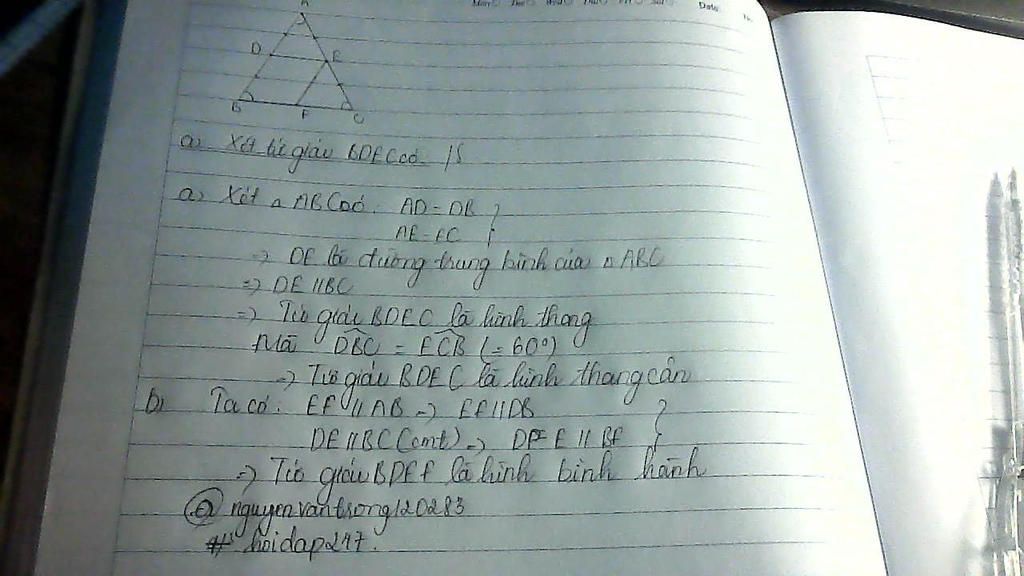 Date:
No.
A
D E
B F C
a) Xét tứ giác BDEC có
a) Xét △ ABC có: AD = DB }
AE = EC
=> DE là đường trung bình của △ ABC
=> DE // BC
=> Tứ giác BDEC là hình thang
Mà DBC = ECB (= 60°)
=> Tứ giác BDEC là hình thang cân
b) Ta có: EF // AB => EF // DB }
DE // BC (cmt) => DE // BF
=> Tứ giác BDEF là hình bình hành
@ nguyenvantrong120283
# hoidap247.